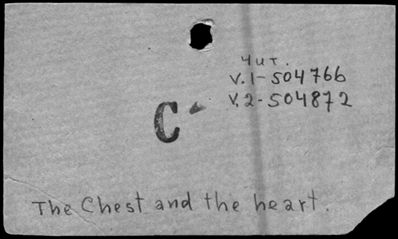 чит.
V.1-504766
V.2-504872
C
The Chest and the heart.